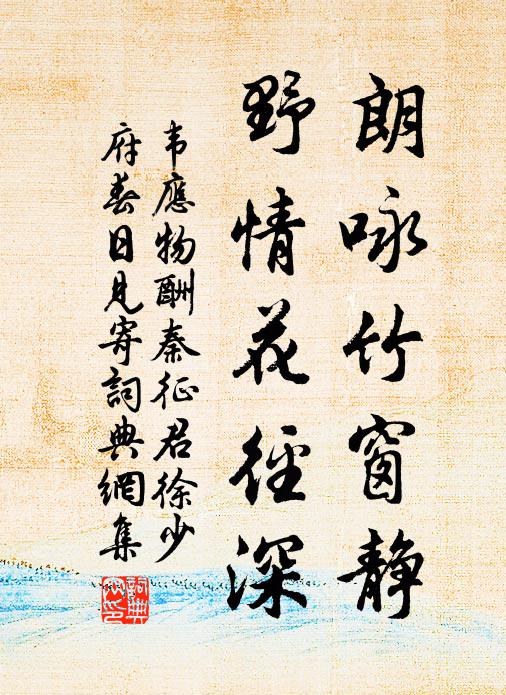 朗咏竹窗静
野情花径深
韦應物酬秦征君徐少
府春日見寄詞典網集